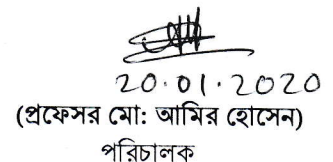 20.01.2020
(প্রফেসর মো: আমির হোসেন)
পরিচালক